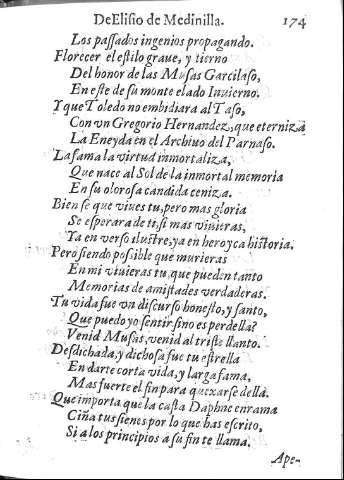 DeElisio de Medinilla. 174
Los paſſados ingenios propagando.
Florecer el eſtilo graue, y tierno
Del honor de las Muſas Garcilaſo,
En eſte de ſu monte elado Inuierno.
Y que Toledo no embidiara al Taſo,
Con vn Gregorio Hernandez, que eterniza
La Eneyda en el Archiuo del Parnaſo.
La fama la virtud inmortaliza,
Que nace al Sol de la inmortal memoria
En ſu oloroſa candida ceniza.
Bien ſe que viues tu, pero mas gloria
Se eſperara de ti, ſi mas viuieras,
Ya en verſo iluſtre, ya en heroyca hiſtoria.
Pero ſiendo poſsible que murieras
En mi viuieras tu, que pueden tanto
Memorias de amiſtades verdaderas.
Tu vida fue vn diſcurſo honeſto, y ſanto,
Que puedo yo ſentir, ſino es perdella?
Venid Muſas, venid al triſte llanto.
Deſdichada, y dichoſa fue tu eſtrella
En darte corta vida, y larga fama,
Mas fuerte el fin para quexarſe della.
Que importa que la caſta Daphne enrama
Ciña tus ſienes por lo que has eſcrito,
Si a los principios a ſu fin te llama.
Ape-